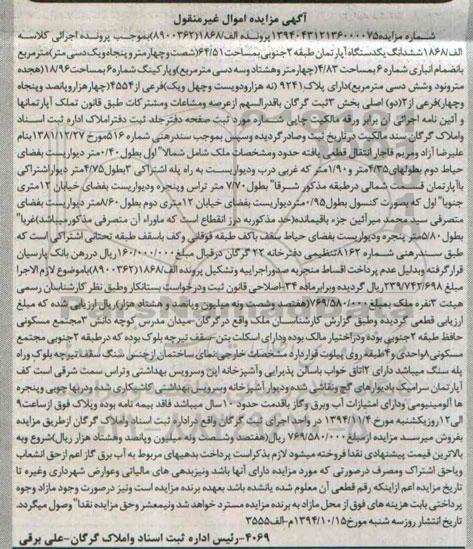 آگهی مزایده اموال غیرمنقول
شماره مزایده۱۳۹۴۰۴۳۱۲۱۳۶۰۰۰۰۷۵ پرونده الف/۱۸۶۸(۸۹۰۰۳۶۲)بموجب پرونده اجرائی کلاسه
الف/۱۸۶۸ششدانگ یکدستگاه آپارتمان طبقه ۲جنوبی بمساحت۶۴/۵۱(شصت وچهارمتر و پنجاه ویک دسی متر)مترمربع
بانضمام انباری شماره ۶ بمساحت ۴/۸۳(چهارمتروهشتاد وسه دسی مترمربع)وپارکینگ شماره ۶ بمساحت۱۸/۹۶(هجده
مترونود وشش دسی مترمربع)دارای پلاک ۹۲۴۱(نه هزارودویست وچهل ویک)فرعی از۴۵۵۴(چهارهزاروپانصد وپنجاه
وچهار)فرعی از۲(دو)اصلی بخش ۳ثبت گرگان باقدرالسهم ازعرصه ومشاعات ومشترکات طبق قانون تملک آپارتمانها
و آئین نامه اجرائی آن برابر ورقه مالکیت چاپی شماره مورد ثبت صفحه دفترجلد ثبت دفتراملاک اداره ثبت اسناد
واملاک گرگان سند مالکیت درتاریخ ثبت وصادرگردیده وسپس بموجب سندرهنی شماره ۵۱۶مورخ۱۳۸۱/۱۲/۲۷بنام
علیرضا آزاد ومریم قاجار انتقال قطعی یافته حدود ومشخصات ملک شمالا"اول بطول ۰/۴۰متر دیواریست بفضای
حیاط دوم بطولهای ۴/۳۵متر و۱/۹۰متر که غربی درب ودیواریست به راه پله اشتراکی ۳بطول۴/۷۵متر دیواراشتراکی
باآپارتمان قسمت شمالی درطبقه مذکور شرقا" بطول ۷/۷۰ متر تراس وپنجره ودیواریست بفضای خیابان ۱۲متری
جنوبا"اول که بصورت کنسول بطول ۰/۹۵متردیواریست بفضای خیابان ۱۲متری دوم بطول ۸/۶۰متر دیواریست بفضای
متصرفی سید محمد میرآئین جزء باقیمانده(حد مذکوربه درز انقطاع است که ماوراء آن متصرفی مذکورمیباشد)غربا"
بطول ۵/۸۰متر پنجره ودیواریست بفضای حیاط سقف باکف طبقه فوقانی وکف باسقف طبقه تحتانی اشتراکی است که
طبق سندرهنی شماره ۸۱۶۲تنظیمی دفترخانه ۲۲ گرگان درقبال مبلغ ۱۶۰/۰۰۰/۰۰۰ریال دررهن بانک پارسیان
قرارگرفته وبدلیل عدم پرداخت اقساط منجربه صدوراجراییه وتشکیل پرونده الف/۱۸۶۸(۸۹۰۰۳۶۲)باموضوع لازم الاجرا
۲۳۹/۷۴۲/۶۹۸ ریال گردیده وبرابرماده ۳۴-اصلاحی قانون ثبت ودرخواست بستانکار وطبق نظر کارشناسان رسمی
هیئت ۳نفره ملک بمبلغ ۷۶۹/۵۸۰/۰۰۰(هفتصد وشصت ونه میلیون وپانصد وهشتاد هزار)ریال ارزیابی شده که مبلغ
ارزیابی قطعی گردیده وطبق گزارش کارشناسان ملک واقع درگرگان-میدان مدرس کوچه دانش ۳مجتمع مسکونی
حافظ طبقه ۲جنوبی بوده ودراختیار مالک بوده ودارای اسکلت بتن-سقف تیرچه بلوک بوده که درطبقه ۲جنوبی مجتمع
مسکونی۸واحدی و۴طبقه روی پیلوت قرارداردمشخصات خارجی نمای ساختمان ازجنس سنگ سقف تیرچه بلوک وراه
پله سنگ میباشد دارای ۲اتاق خواب باسالن پذیرایی وآشپزخانه اپن وسرویس بهداشتی وتراس سمت شرقی است کف
آپارتمان سرامیک بادیوارهای گچ ونقاشی شده ودیوار آشپزخانه وسرویس بهداشتی کاشیکاری شده ودربها چوبی وپنجره
ها آلومینیومی ودارای امتیازات آب وبرق وگاز باقدمت حدود ۱۰سال میباشد فاقد بیمه نامه بوده وپلاک فوق ازساعت۹
الی ۱۲روزیکشنبه مورخ ۱۳۹۴/۱۱/۴ در واحد اجرای ثبت گرگان واقع دراداره ثبت اسناد واملاک گرگان ازطریق مزایده
بفروش میرسد مزایده ازمبلغ ۷۶۹/۵۸۰/۰۰۰ ریال(هفتصد وشصت ونه میلیون وپانصد وهشتاد هزار ریال)شروع وبه
بالاترین قیمت پیشنهادی نقدا فروخته میشود لازم بذکراست پرداخت بدهیهای مربوط به آب برق گاز اعم ازحق انشعاب
ویاحق اشتراک ومصرف درصورتی که مورد مزایده دارای آنها باشد ونیزبدهی های مالیاتی وعوارض شهرداری وغیره تا
تاریخ مزایده اعم ازاینکه رقم قطعی آن معلوم شده یانشده باشد بعهده برنده مزایده است ونیز درصورت وجود مازاد وجوه
پرداختی بابت هزینه های فوق از محل مازاد به برنده مزایده مسترد خواهد شد ونیمعشر وحق مزایده نقدا" وصول میگردد.
تاریخ انتشار روزسه شنبه مورخ۱۳۹۴/۱۰/۱۵م-الف۳۵۵۵
۴۰۶۹-رئیس اداره ثبت اسناد واملاک گرگان-علی برقی